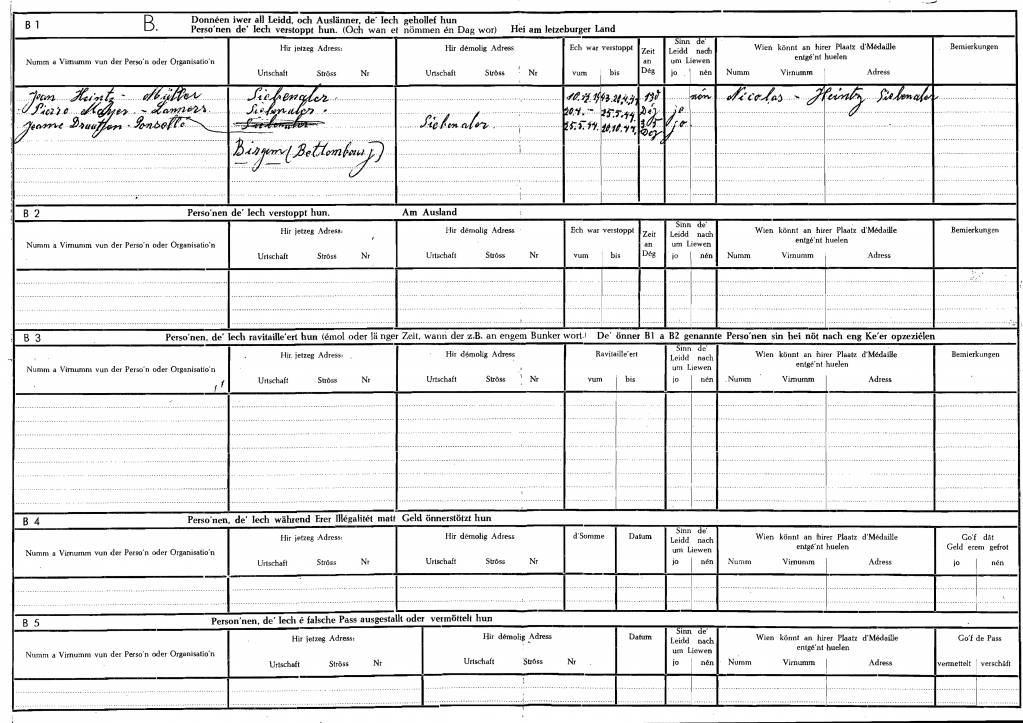 B 1 B. Donnéen iwer all Leidd, och Auslänner, de' Iech gehollef hun
Perso'nen de' Iech verstoppt hun. (Och wan et nömmen én Dag wor) Hei am letzeburger Land
Numm a Virnumm vun der Perso'n oder Organisatio'n
Hir jetzeg Adress:
Urtschaft Ströss Nr
Hir démolig Adress
Urtschaft Ströss Nr
Ech war verstoppt
vum bis
Zeit an Dég
Sinn de' Leidd nach um Liewen
jo nén
Wien könnt an hirer Plaatz d'Médaille entgé'nt huelen
Numm Virnumm Adress
Bemierkungen
Jean Heintz - Müller Siebenaler 130 nón Nicolas - Heintz Siebenaler
Pierre Mayer - Lanners Siebenaler 20.4. - 25.5.44. Dég jo
Jeanne Siebenaler Siebenaler 25.5.44. 10.10.44. Dég jo.
Birgem (Bettembourg)
B 2 Perso'nen de' Iech verstoppt hun. Am Ausland
Numm a Virnumm vun der Perso'n oder Organisatio'n
Hir jetzeg Adress:
Urtschaft Ströss Nr
Hir démolig Adress
Urtschaft Ströss Nr
Ech war verstoppt
vum bis
Zeit an Dég
Sinn de' Leidd nach um Liewen
jo nén
Wien könnt an hirer Plaatz d'Médaille entgé'nt huelen
Numm Virnumm Adress
Bemierkungen
B 3 Perso'nen, de' Iech ravitaille'ert hun (émol oder lä nger Zeit, wann der z.B. an engem Bunker wort.) De' önner B1 a B2 genannte Perso'nen sin hei nöt nach eng Ke'er opzeziélen
Numm a Virnumm vun der Perso'n oder Organisatio'n
Hir jetzeg Adress:
Urtschaft Ströss Nr
Hir démolig Adress
Urtschaft Ströss Nr
Ravitaille'ert
vum bis
Sinn de' Leidd nach um Liewen
jo nén
Wien könnt an hirer Plaatz d'Médaille entgé'nt huelen
Numm Virnumm Adress
Bemierkungen
B 4 Perso'nen, de' Iech während Erer Illégalitét matt Geld önnerstötzt hun
Numm a Virnumm vun der Perso'n oder Organisatio'n
Hir jetzeg Adress:
Urtschaft Ströss Nr
Hir démolig Adress
Urtschaft Ströss Nr
d'Somme Datum
Sinn de' Leidd nach um Liewen
jo nén
Wien könnt an hirer Plaatz d'Médaille entgé'nt huelen
Numm Virnumm Adress
Go'f dât Geld erem gefrot
jo nén
B 5 Person'nen, de' Iech é falsche Pass ausgestallt oder vermöttelt hun
Numm a Virnumm vun der Perso'n oder Organisatio'n
Hir jetzeg Adress:
Urtschaft Ströss Nr
Hir démolig Adress
Urtschaft Ströss Nr
Datum
Sinn de' Leidd nach um Liewen
jo nén
Wien könnt an hirer Plaatz d'Médaille entgé'nt huelen
Numm Virnumm Adress
Go'f de Pass
vermettelt verschâft